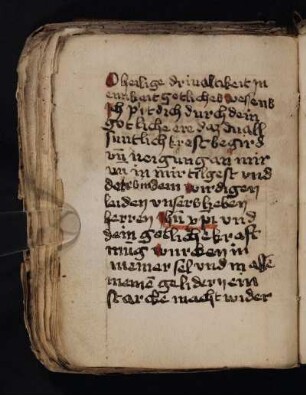 O heilige drivaltikeit in
einikait gotliches wesens
Ich pit dich durch dein
gotliche ere das du all
suntlich krefft begird
vn̄ neigung an mir
vn in mir tilgest vnd
dem wirdigen
leiden vnsers lieben
herren ihū xpī vnd
dein gotliche kraft
müg wurcken in
meiner sel vnd in alle
meinē gelidern ein
starcke macht wider